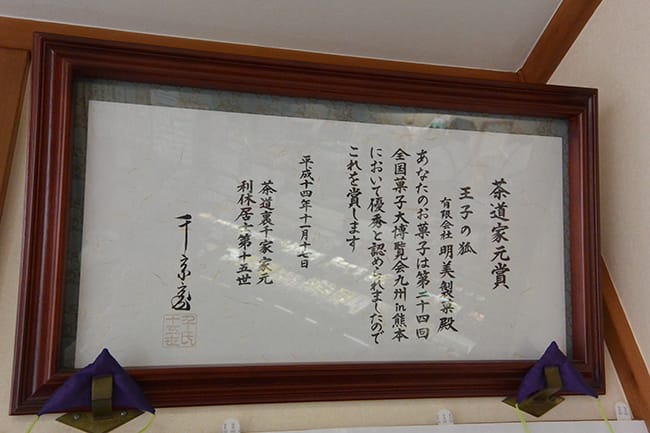 茶道家元賞
王子の狐
有限会社 明美製菓殿
あなたのお菓子は第二十四回
全国菓子大博覧会九州in熊本
において優秀と認められましたので
これを賞します
平成十四年十一月十七日
茶道裏千家家元
利休居士第十五世
千宗室